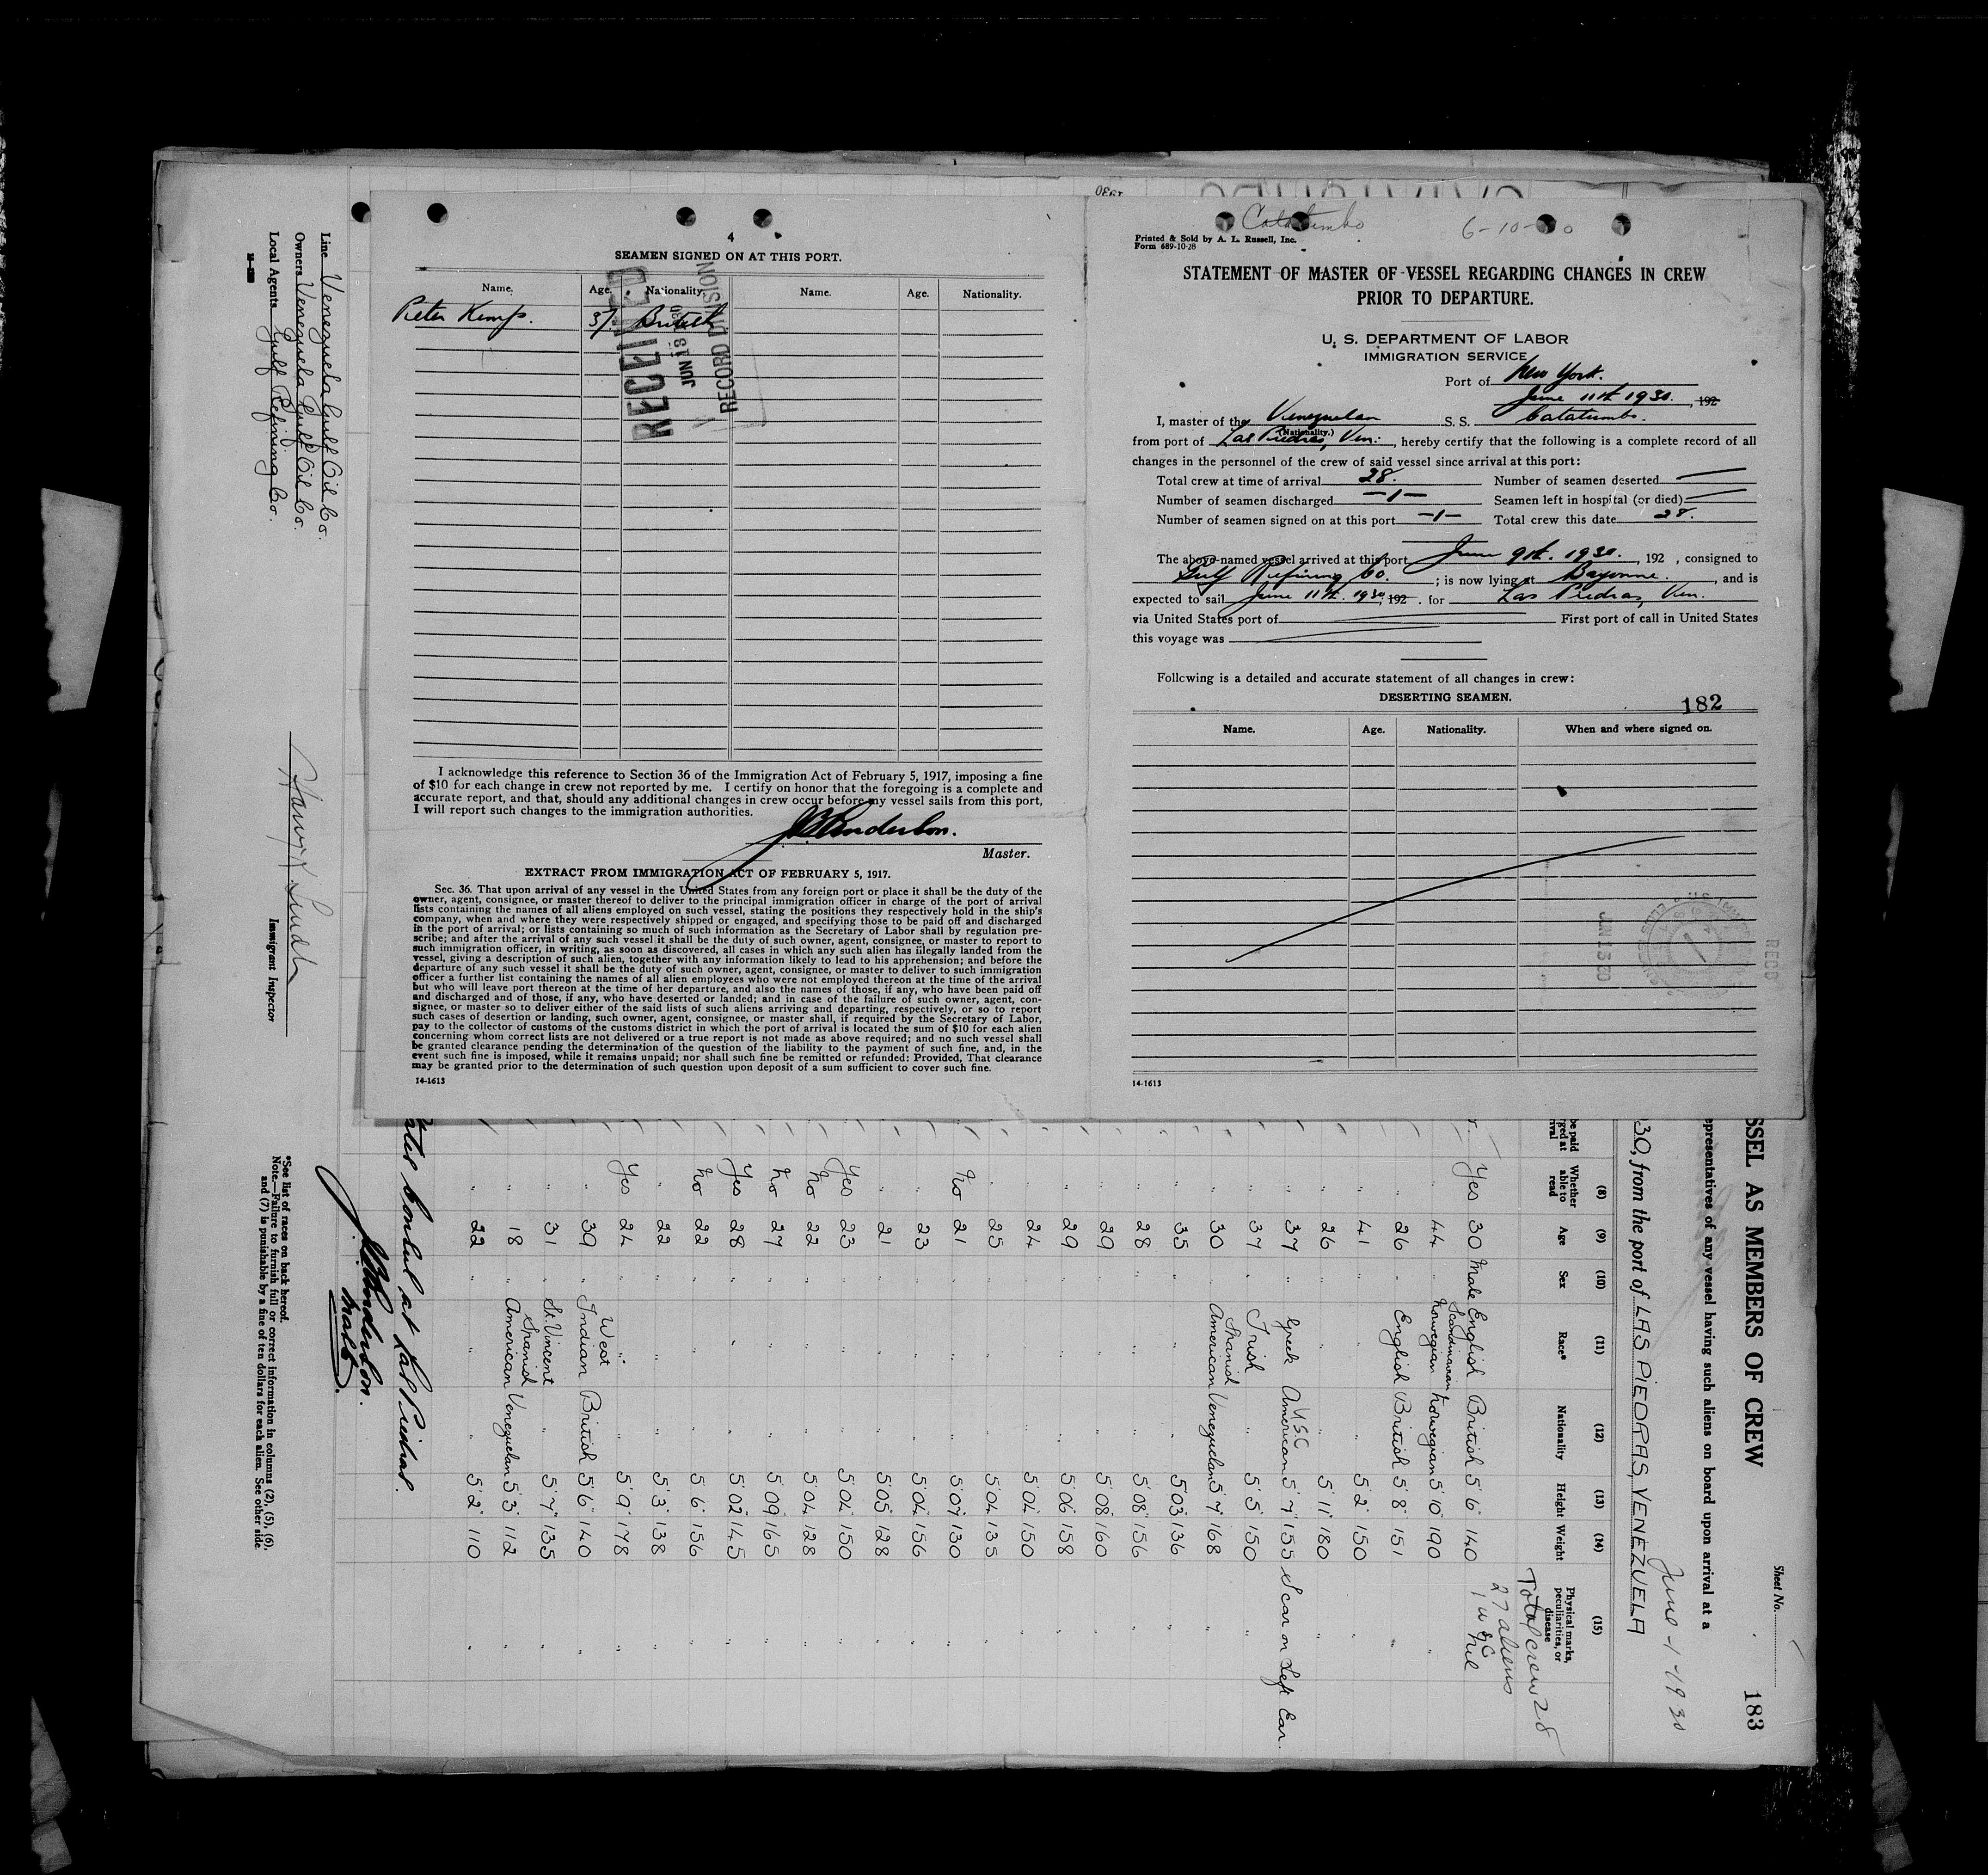 4
SEAMEN SIGNED ON AT THIS PORT.
Name. Age. Nationality. Name. Age. Nationality.
Pieter Kemp. 37 British
RECEIVED
JUN 13 1930
RECORD DIVISION
I acknowledge this reference to Section 36 of the Immigration Act of February 5, 1917, imposing a fine
of $10 for each change in crew not reported by me. I certify on honor that the foregoing is a complete and
accurate report, and that, should any additional changes in crew occur before my vessel sails from this port,
I will report such changes to the immigration authorities.
Master.
EXTRACT FROM IMMIGRATION ACT OF FEBRUARY 5, 1917.
Sec. 36. That upon arrival of any vessel in the United States from any foreign port or place it shall be the duty of the
owner, agent, consignee, or master thereof to deliver to the principal immigration officer in charge of the port of arrival
lists containing the names of all aliens employed on such vessel, stating the positions they respectively hold in the ship's
company, when and where they were respectively shipped or engaged, and specifying those to be paid off and discharged
in the port of arrival; or lists containing so much of such information as the Secretary of Labor shall by regulation pre-
scribe; and after the arrival of any such vessel it shall be the duty of such owner, agent, consignee, or master to report to
such immigration officer, in writing, as soon as discovered, all cases in which any such alien has illegally landed from the
vessel, giving a description of such alien, together with any information likely to lead to his apprehension; and before the
departure of any such vessel it shall be the duty of such owner, agent, consignee, or master to deliver to such immigration
officer a further list containing the names of all alien employees who were not employed thereon at the time of the arrival
but who will leave port thereon at the time of her departure, and also the names of those, if any, who have been paid off
and discharged and of those, if any, who have deserted or landed; and in case of the failure of such owner, agent, con-
signee, or master so to deliver either of the said lists of such aliens arriving and departing, respectively, or so to report
such cases of desertion or landing, such owner, agent, consignee, or master shall, if required by the Secretary of Labor,
pay to the collector of customs of the customs district in which the port of arrival is located the sum of $10 for each alien
concerning whom correct lists are not delivered or a true report is not made as above required; and no such vessel shall
be granted clearance pending the determination of the question of the liability to the payment of such fine, and, in the
event such fine is imposed, while it remains unpaid; nor shall such fine be remitted or refunded: Provided, That clearance
may be granted prior to the determination of such question upon deposit of a sum sufficient to cover such fine.
14-1613
Catatumbo
Printed & Sold by A. L. Russell, Inc.
Form 689-10-28
STATEMENT OF MASTER OF VESSEL REGARDING CHANGES IN CREW
PRIOR TO DEPARTURE.
U. S. DEPARTMENT OF LABOR
IMMIGRATION SERVICE
Port of New York.
June 11th 1930. , 192
I, master of the Venezuelan S. S. Catatumbo.
(Nationality.)
from port of Las Piedras, Ven. , hereby certify that the following is a complete record of all
changes in the personnel of the crew of said vessel since arrival at this port:
Total crew at time of arrival 28. Number of seamen deserted
Number of seamen discharged -1- Seamen left in hospital (or died)
Number of seamen signed on at this port -1- Total crew this date 28.
The above-named vessel arrived at this port June 9th. 1930. , 192 , consigned to
Gulf Refining Co. ; is now lying at Bayonne. , and is
expected to sail June 11th. 1930, 192 . for Las Piedras, Ven.
via United States port of First port of call in United States
this voyage was
Following is a detailed and accurate statement of all changes in crew:
DESERTING SEAMEN.
182
Name. Age. Nationality. When and where signed on.
JUN 13 30
RECD
14-1613
Line Venezuela Gulf Oil Co.
Owners Venezuela Gulf Oil Co.
Local Agents Gulf Refining Co.
Immigrant Inspector
*See list of races on back hereof.
Note.—Failure to furnish full or correct information in columns (2), (5), (6),
and (7) is punishable by a fine of ten dollars for each alien. See other side
Sheet No.
183
SSEL AS MEMBERS OF CREW
epresentatives of any vessel having such aliens on board upon arrival at a
June - 1 - 1930
30, from the port of LAS PIEDRAS, VENEZUELA
(8) (9) (10) (11) (12) (13) (14) (15)
Whether able to read Age Sex Race* Nationality Height Weight Physical marks, peculiarities, or disease
Total crew 28
27 aliens
1 USC
Yes 30 Male English British 5' 6" 140 Nil
" 44 " Scandinavian Norwegian Norwegian 5' 10" 190 "
" 26 " English British 5' 8" 151
" 41 " " " 5' 2" 150 "
" 26 " " " 5' 11" 180 "
" 37 " Greek U.S.C American 5' 7" 155 Scar on Left Ear.
" 37 " Irish " 5' 5" 150
" 30 " Spanish American Venezuelan 5' 7" 168 "
" 35 " " " 5' 03" 136 "
" 28 " " " 5' 08" 156 "
" 29 " " " 5' 08" 160 "
" 29 " " " 5' 06" 158 "
" 24 " " " 5' 04" 150 "
" 25 " " " 5' 04" 135 "
No 21 " " " 5' 07" 130 "
" 23 " " " 5' 04" 156 "
" 21 " " " 5' 05" 128 "
Yes 23 " " " 5' 04" 150 "
No 22 " " " 5' 04" 128 "
No 27 " " " 5' 09" 165 "
Yes 28 " " " 5' 02" 145 "
No 22 " " " 5' 6" 156 "
" 22 " " " 5' 3" 138 "
Yes 24 " " " 5' 9" 178 "
" 39 " West Indian British 5' 6" 140 "
" 31 " St. Vincent " 5' 7" 135 "
" 18 " Spanish American Venezuelan 5' 3" 112 "
" 22 " " " 5' 2" 110 "
Consul at Las Piedras.